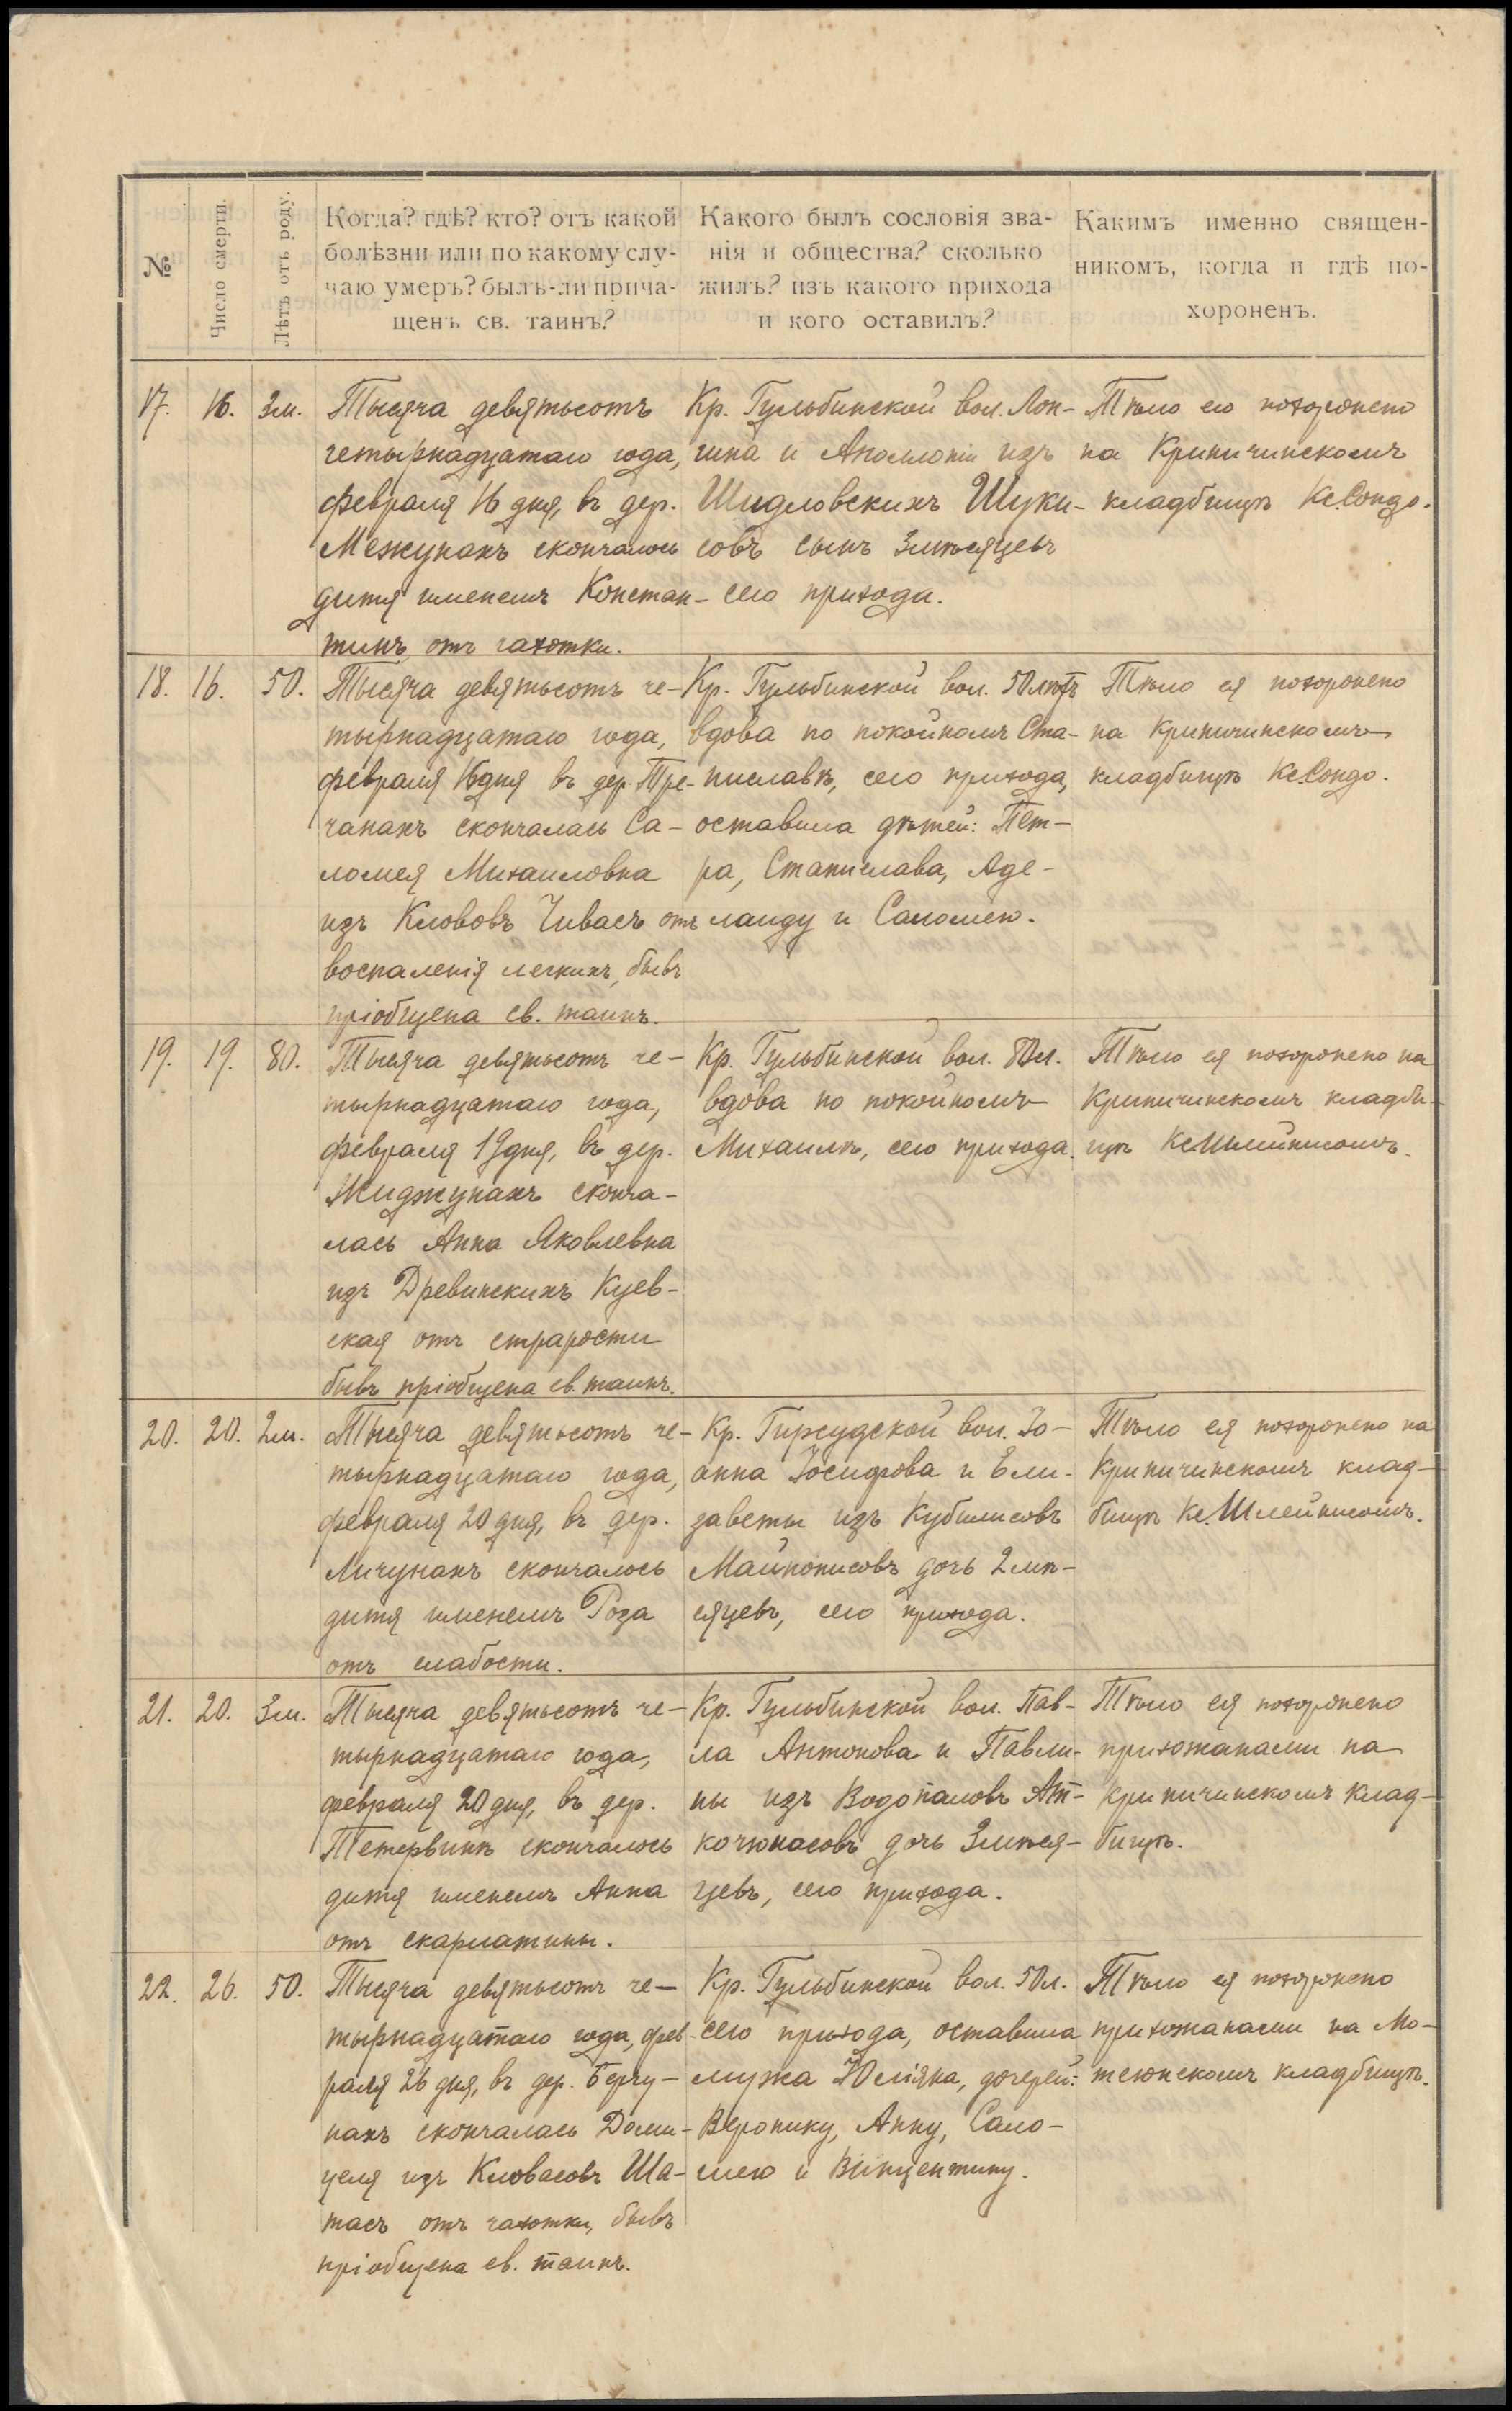 №
Число смерти.
Лѣтъ отъ роду.
Когда? гдѣ? кто? отъ какой
болѣзни или по какому слу-
чаю умеръ? былъ-ли прича-
щенъ св. таинъ?
Какого былъ сословія зва-
нія и общества? сколько
жилъ? изъ какого прихода
и кого оставилъ?
Какимъ именно священ-
никомъ, когда и гдѣ по-
хороненъ.
17. 16. 3м.
Тысяча девятьсотъ
четырнадцатаго года,
февраля 16 дня, въ дер.
Межунахъ скончалось
дитя именемъ Констан-
тинъ отъ чахотки.
Кр. Гульбинской вол. Лон-
гина и Аполлоніи изъ
Шидловскихъ Шуки-
совъ сынъ 3мѣсяцевъ
сего прихода.
Тѣло его похоронено
на Криничинскомъ
кладбищѣ Кс.Сондо.
18. 16. 50.
Тысяча девятьсотъ че-
тырнадцатаго года,
февраля 16дня въ дер. Тре-
чанахъ скончалась Са-
ломея Михаиловна
изъ Клововъ Чивасъ отъ
воспаленія легкихъ, бывъ
пріобщена св. таинъ.
Кр. Гульбинской вол. 50лѣтъ
вдова по покойномъ Ста-
ниславѣ, сего прихода,
оставила дѣтей: Пет-
ра, Станислава, Аде-
лаиду и Саломею.
Тѣло ея похоронено
на Криничинскомъ
кладбищѣ Кс.Сондо.
19. 19. 80.
Тысяча девятьсотъ че-
тырнадцатаго года,
февраля 19дня, въ дер.
Миджунахъ сконча-
лась Анна Яковлевна
изъ Древинскихъ Куев-
ская отъ страрости
бывъ пріобщена св. таинъ.
Кр. Гульбинской вол. 80л.
вдова по покойномъ
Михаилѣ, сего прихода.
Тѣло ея похоронено на
Криничинскомъ кладби-
щѣ Кс.Шлейнисомъ.
20. 20. 2м.
Тысяча девятьсотъ че-
тырнадцатаго года,
февраля 20 дня, въ дер.
Личунахъ скончалось
дитя именемъ Роза
отъ слабости.
Кр. Гирсудской вол. Іо-
анна Іосифова и Ели-
заветы изъ Кубилисовъ
Майнонисовъ дочь 2мѣ-
сяцевъ, сего прихода.
Тѣло ея похоронено на
Криничинскомъ клад-
бищѣ Кс.Шлейнисомъ.
21. 20. 3м.
Тысяча девятьсотъ че-
тырнадцатаго года,
февраля 20 дня, въ дер.
Петервинѣ скончалось
дитя именемъ Анна
отъ скарлатины.
Кр. Гульбинской вол. Пав-
ла Антонова и Павли-
ны изъ Водопаловъ Ат-
кочюнасовъ дочь 3мѣся-
цевъ, сего прихода.
Тѣло ея похоронено
прихожанами на
Криничинскомъ клад-
бищѣ.
22. 26. 50.
Тысяча девятьсотъ че-
тырнадцатаго года, фев-
раля 26 дня, въ дер. Берчу-
нахъ скончалась Доми-
целя изъ Кловасовъ Ша-
тасъ отъ чахотки, бывъ
пріобщена св. таинъ.
Кр. Гульбинской вол. 50л.
сего прихода, оставила
мужа Юліяна, дочерей:
Веронику, Анну, Сало-
мею и Винцентину.
Тѣло ея похоронено
прихожанами на Мо-
теюнскомъ кладбищѣ.